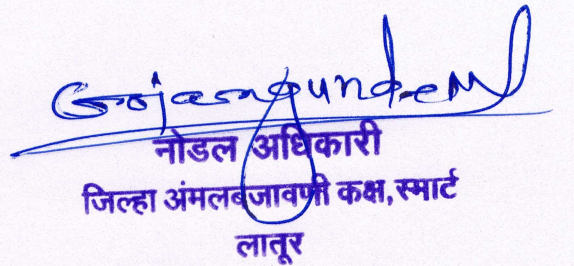 Gojamgunde M
नोडल अधिकारी
जिल्हा अंमलबजावणी कक्ष, स्मार्ट
लातूर